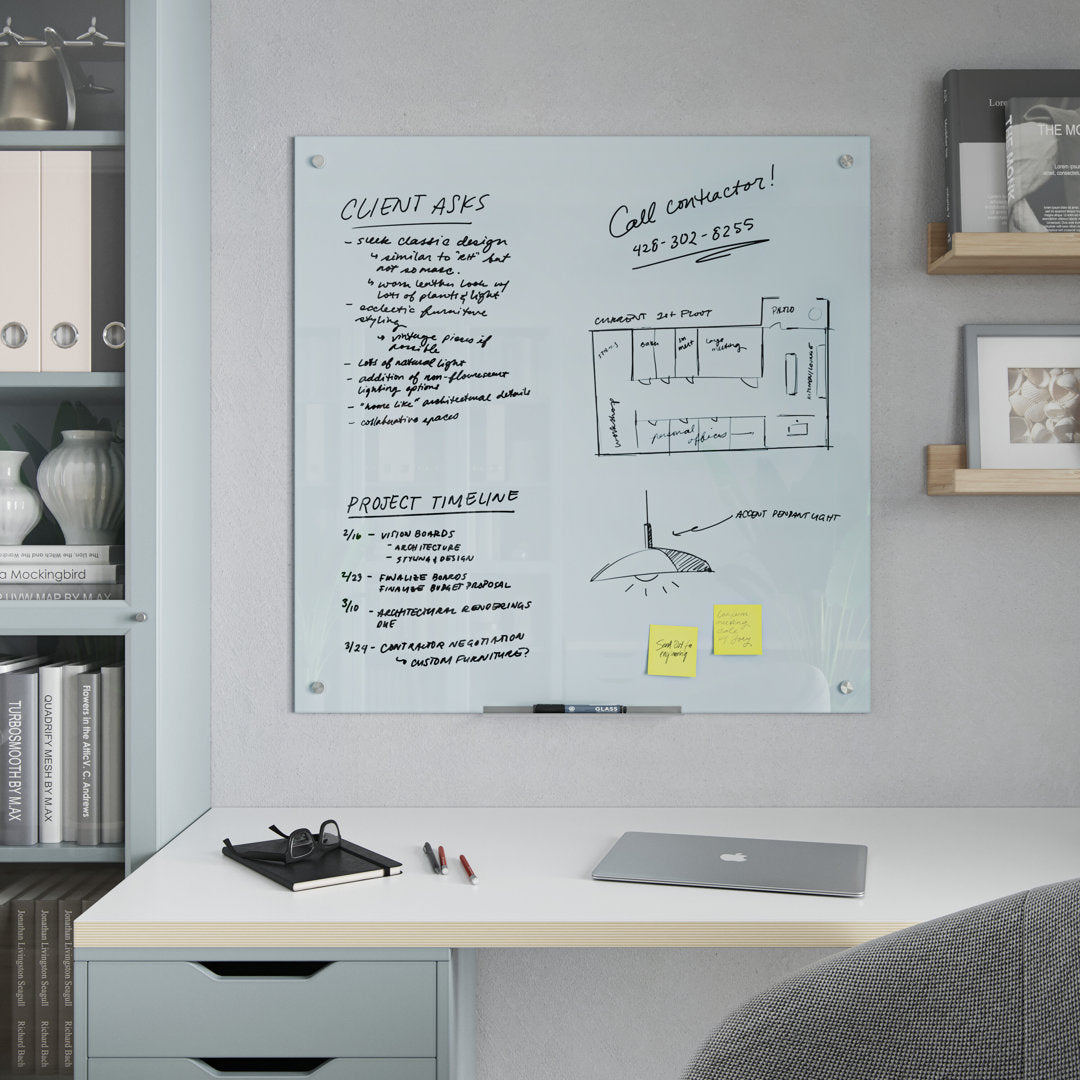 CLIENT ASKS
- sleek classic design
↳ similar to "RH" but
not so masc.
↳ warm leather look w/
lots of plants & light
- ecclectic furniture
styling
↳ vintage pieces if
possible
- lots of natural light
- addition of non-flourescent
lighting options
- "home like" architectural details
- collaborative spaces
PROJECT TIMELINE
2/16 - VISION BOARDS
- ARCHITECTURE
- STYLING & DESIGN
2/23 - FINALIZE BOARDS
FINALIZE BUDGET PROPOSAL
3/10 - ARCHITECTURAL RENDERINGS
DUE
3/24 - CONTRACTOR NEGOTIATION
↳ CUSTOM FURNITURE?
Call contractor!
428-302-8255
CURRENT 1st FLOOR
PATIO
large meeting
workshop
personal offices
ACCENT PENDANT LIGHT
meeting
date
GLASS
The Lion, The Witch and the Wardrobe
a Mockingbird
UVW MAP BY M.AX
TURBOSMOOTH BY M.AX
QUADRIFY MESH BY M.AX
Flowers in the Attic V. C. Andrews
Jonathan Livingston Seagull Richard Bach
Jonathan Livingston Seagull Richard Bach
Jonathan Livingston Seagull Richard Bach
Lore
THE MO
Lorem ipsu